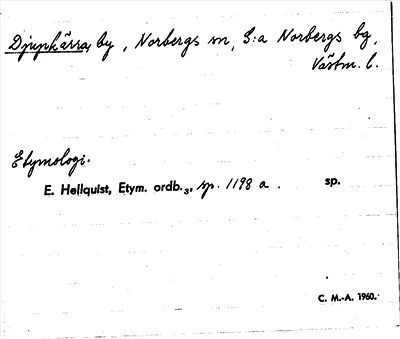 Djupkärra, by, Norbergs sn, S:a Norbergs bg,
Västm. l.
Etymologi.
E. Hellquist, Etym. ordb.₃, sp. 1198 a. sp.
C. M.-A. 1960.